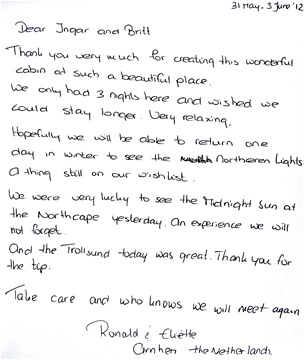 31 May - 3 June '12
Dear Ingar and Britt
Thank you very much for creating this wonderful
cabin at such a beautiful place.
We only had 3 nights here and wished we
could stay longer. Very relaxing.
Hopefully we will be able to return one
day in winter to see the Northeren Lights
A thing still on our wishlist.
We were very lucky to see the Midnight Sun at
the Northcape yesterday. An experience we will
not forget.
And the Trollsund today was great. Thank you for
the tip.
Take care and who knows we will meet again
Ronald &
Arnhem the Netherlands